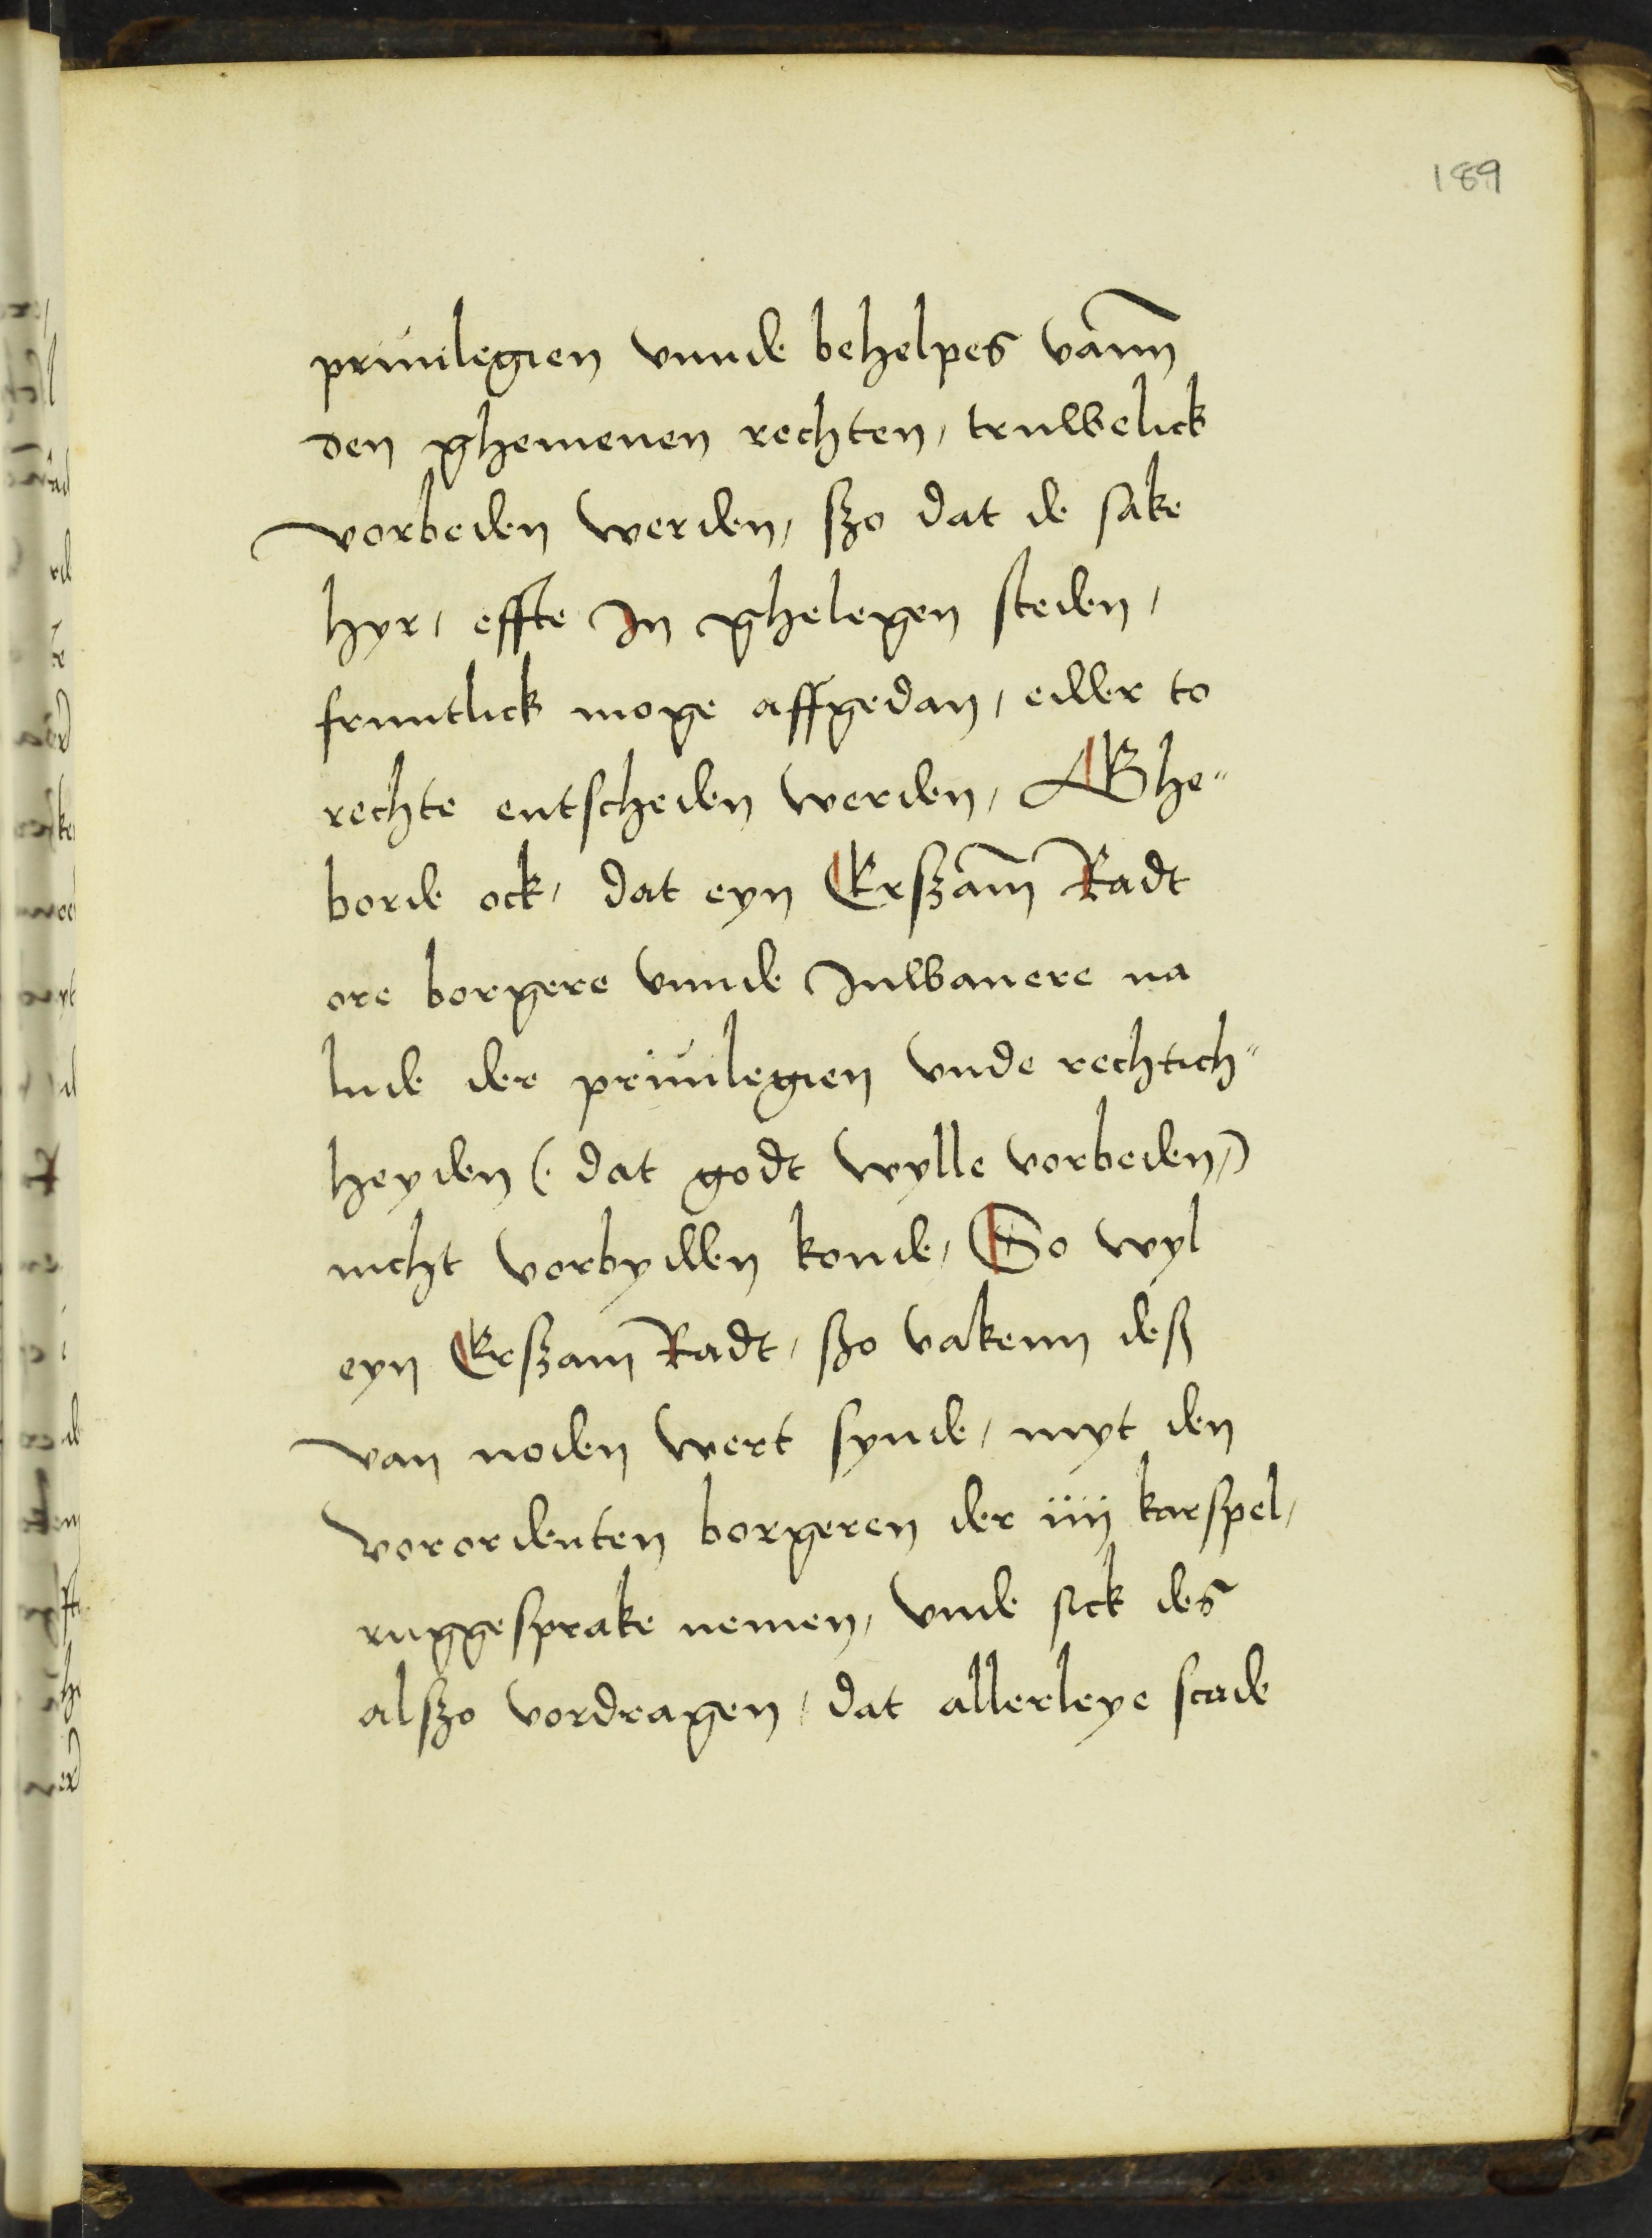 189
priuilegien vnnde behelpes vann
den ghemenen rechten, truwelick
vorbeden werden, szo dat de sake
hyr, effte In ghelegen steden,
fruntlick moge affgedan, edder to
rechte entscheden werden, Ghe"
borde ock, dat eyn Erszam Radt
ore borgere vnnde Inwanere na
lude der priuilegien vnde rechtich"
heyden (. dat godt wylle vorbeden,)
nicht vorbydden konde, So wyl
eyn Erszam Radt, szo vakenn desz
van noden wert synde, myt den
vorordenten borgeren der iiij karspel,
ruggesprake nemen, vnde sick des
alszo vordragen, dat allerleye scade